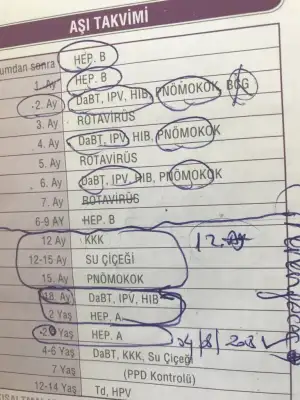 AŞI TAKVİMİ
umdan sonra HEP. B
1. Ay HEP. B
2. Ay DaBT, IPV, HIB, PNÖMOKOK, BCG
3. Ay ROTAVİRÜS
4. Ay DaBT, IPV, HIB, PNÖMOKOK
5. Ay ROTAVİRÜS
6. Ay DaBT, IPV, HIB, PNÖMOKOK
7. Ay ROTAVİRÜS
6-9 AY HEP. B
12 Ay KKK 12. Ay
12-15 Ay SU ÇİÇEĞİ
15. Ay PNÖMOKOK
18. Ay DaBT, IPV, HIB
2 Yaş HEP. A
Yaş HEP. A
4-6 Yaş DaBT, KKK, Su Çiçeği
7 Yaş (PPD Kontrolü)
12-14 Yaş Td, HPV